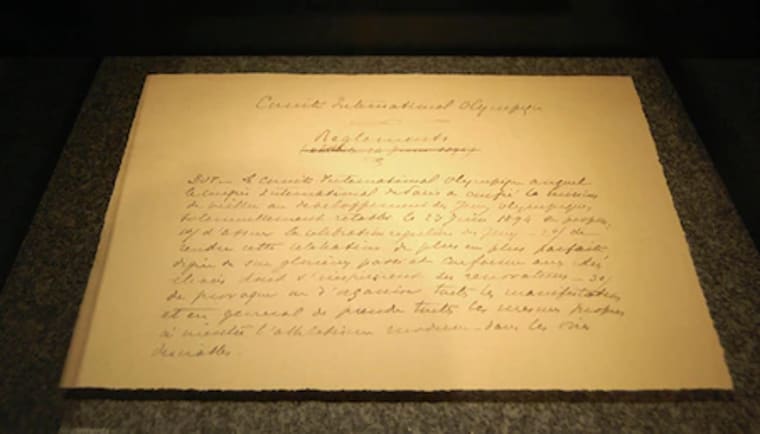 Comité International Olympique
Règlements
But — Le Comité International Olympique auquel
le congrès International de Paris a confié la mission
de veiller au développement des Jeux Olympiques
solennellement rétablis le 23 Juin 1894 se propose:
1o/ d'assurer la célébration régulière des Jeux — 2o/ de
rendre cette célébration de plus en plus parfaite,
digne de son glorieux passé et conforme aux idées
élevées dont s'inspiraient ses rénovateurs — 3o/
de provoquer ou d'organiser toutes les manifestations
et en général de prendre toutes les mesures propres
à orienter l'athlétisme moderne dans les voies
désirables.